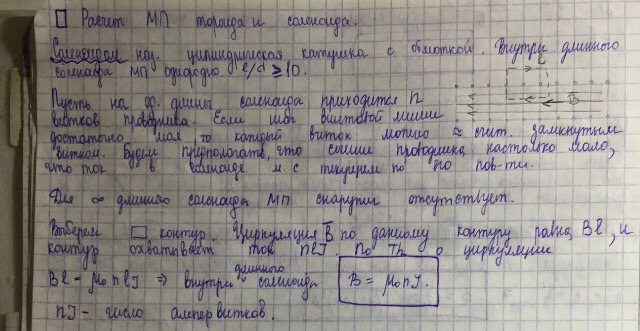 □ Расчет МП тороида и соленоида.
Соленоидом наз. цилиндрическая катушка с обмоткой. Внутри длинного
соленоида МП однородно. l/d ⩾ 10.
Пусть на ед. длины соленоида приходится n
витков проводника. Если шаг винтовой линии
достаточно мал то каждый виток можно ≈ счит. замкнутым
витком. Будем предпологать, что сечение проводника настолько мало,
что ток в соленоиде м.с. текущим по его пов-ти.
Для ∞ длинного соленоида МП снаружи отсутствует.
Выберем □ контур. Циркуляция B по данному контуру равна Bl, и
контур охватывает ток nlI. По Th о циркуляции
Bl = μ₀nlI ⇒ внутри длинного соленоида B = μ₀nI.
nI – число ампервитков.
l
B